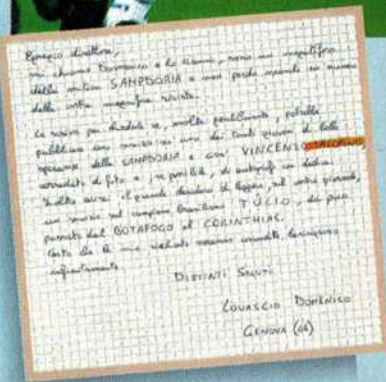 Egregio direttore,
mi chiamo Domenico e ho anni, sono un
della mitica SAMPDORIA e non perdo mai un numero
della vostra magnifica rivista.
Le scrivo per chiederle se, molto gentilmente, potrebbe
pubblicare un servizio su uno dei tanti giovani di belle
speranze della SAMPDORIA e cioè VINCENZO
corredato di foto e, se possibile, di autografo con dedica.
Inoltre avrei il grande desiderio di leggere, sul vostro giornale,
un servizio sul campione brasiliano TULIO, da poco
passato dal BOTAFOGO al CORINTHIAS.
Certo che le mie richieste verranno esaudite, La ringrazio
infinitamente.
DISTINTI SALUTI
LOVASCIO DOMENICO
GENOVA (GE)